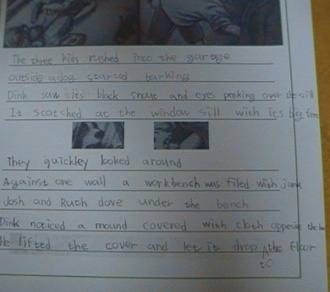 The three kids rushed into the garage
outside a dog started barking
Dink saw its black snout and eyes peeking over the sill
It scatched at the window sill with its big
They quickley looked around
Against one wall a workbench was filed with junk
Josh and Ruth dove under the bench
Dink noticed a mound covered with cloth opposite the
He lifted the cover and let it drop to the floor